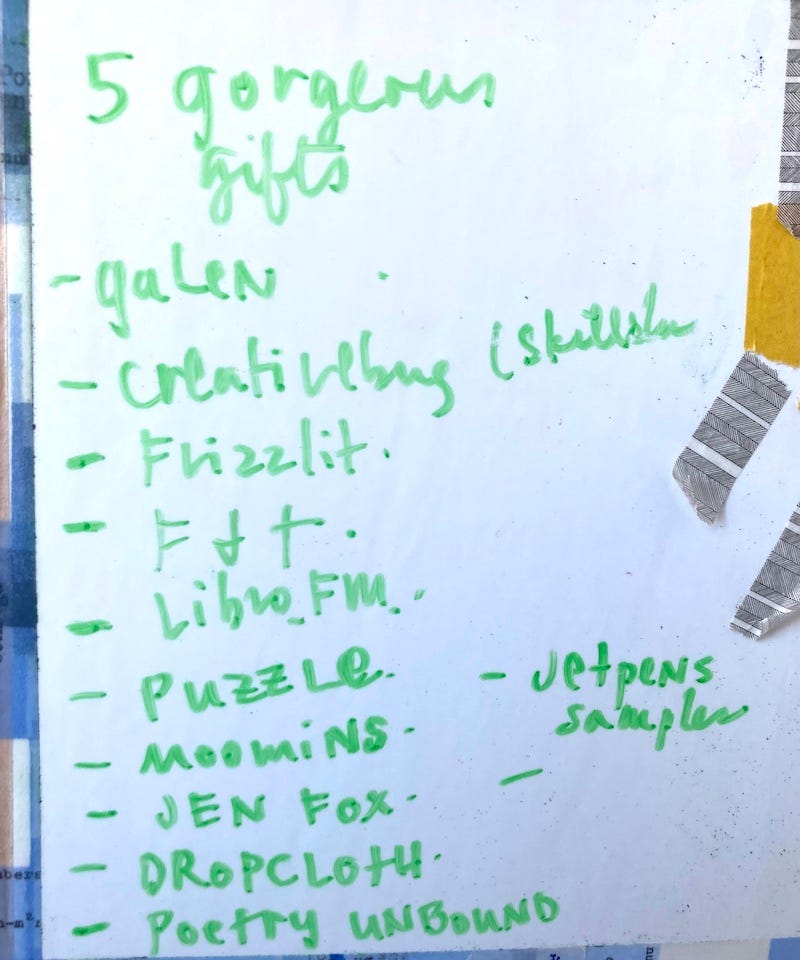 5 gorgeous
gifts
- galen
- creativebug (skillsh
- Frizzlit.
- F J T.
- Libro.FM.
- PUZZLE.
- MOOMINS.
- JEN FOX.
- DROPCLOTH.
- POETRY UNBOUND
- Jetpens
samples
-